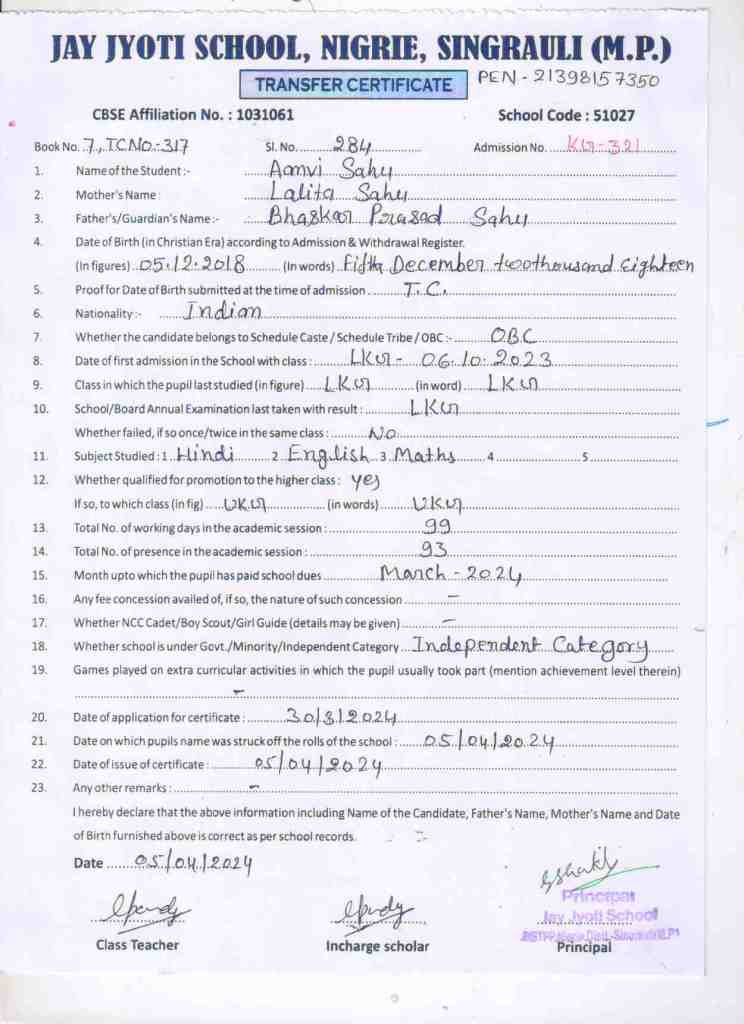 JAY JYOTI SCHOOL, NIGRIE, SINGRAULI (M.P.)
TRANSFER CERTIFICATE PEN - 21398157350
CBSE Affiliation No. : 1031061 School Code : 51027
Book No. 7, TC NO.-317 Sl. No. 284 Admission No. KG-321
1. Name of the Student :- Aanvi Sahu
2. Mother's Name : Lalita Sahu
3. Father's/Guardian's Name :- Bhaskar Prasad Sahu
4. Date of Birth (in Christian Era) according to Admission & Withdrawal Register.
(In figures) 05.12.2018 (In words) Fifth December twothousand Eighteen
5. Proof for Date of Birth submitted at the time of admission T.C.
6. Nationality :- Indian
7. Whether the candidate belongs to Schedule Caste / Schedule Tribe / OBC :- OBC
8. Date of first admission in the School with class : LKG - 06.10.2023
9. Class in which the pupil last studied (in figure) LKG (in word) LKG
10. School/Board Annual Examination last taken with result : LKG
Whether failed, if so once/twice in the same class : No
11. Subject Studied : 1 Hindi 2 English 3 Maths 4 5
12. Whether qualified for promotion to the higher class : yes
If so, to which class (in fig) UKG (in words) UKG
13. Total No. of working days in the academic session : 99
14. Total No. of presence in the academic session : 93
15. Month upto which the pupil has paid school dues March - 2024
16. Any fee concession availed of, if so, the nature of such concession -
17. Whether NCC Cadet/Boy Scout/Girl Guide (details may be given) -
18. Whether school is under Govt./Minority/Independent Category Independent Category
19. Games played on extra curricular activities in which the pupil usually took part (mention achievement level therein)
-
20. Date of application for certificate : 30/3/2024
21. Date on which pupils name was struck off the rolls of the school : 05/04/2024
22. Date of issue of certificate : 05/04/2024
23. Any other remarks : -
I hereby declare that the above information including Name of the Candidate, Father's Name, Mother's Name and Date
of Birth furnished above is correct as per school records.
Date 05/04/2024
Principal
Jay Jyoti School
Class Teacher Incharge scholar Principal